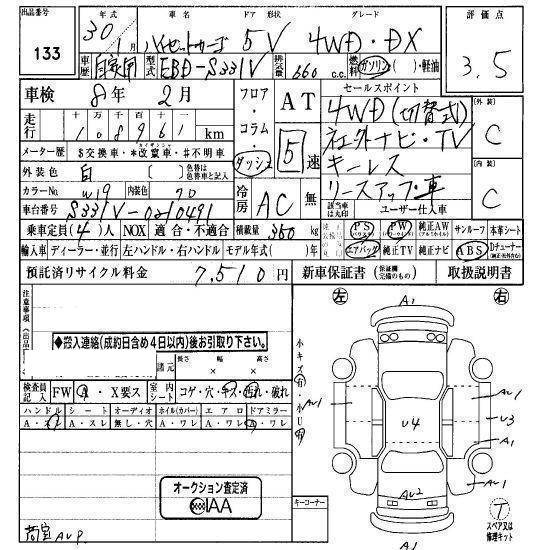 出品番号 133
年式 30年 1月
車名 ハイゼットカーゴ
ドア 形状 5V
グレード 4WD・DX
評価点 3.5
車歴 自家用
型式 EBD-S331V
排気量 660 c.c.
燃料 ガソリン・軽油
車検 8年 2月
フロア・コラム・ダッシュ
AT 5速
セールスポイント
4WD(切替式)
社外ナビ・TV
キーレス
リースアップ車
外装 C
内装 C
走行 十万 万 千 百 十 一
108961 km
メーター歴 $交換車・*改竄車・#不明車
外装色 白 色替は色替車と記入
カラーNo W19 内装色 70
冷房 AC 無
車台番号 S331V-0210491
該当車は丸印 ユーザー仕入車
乗車定員(4)人 NOX 適合・不適合 積載量 350 kg
PS PW 純正AW サンルーフ 本革シート
輸入車 ディーラー・並行 左ハンドル・右ハンドル モデル年式( )年
エアバッグ 純正TV 純正ナビ ABS Dチューナー
預託済リサイクル料金 7,510 円
新車保証書 取扱説明書
注意事項
◆搬入連絡(成約日含め4日以内)後お引取り下さい。
諸元 長さ 幅 高さ
× ×
検査員記入 FW A・X要ス 室内シート コゲ・穴・キズ・汚れ・破れ
ハンドル シート オーディオ ホイル(カバー) エアロ ドアミラー
A・ス A・スレ 無し・穴 A・ワレ A・ワレ A・ワレ
荷室AUP
オークション査定済
IAA
左 右
小キズ有・小U有
A1
AU1
U4
AU1
U3
A1
AU2
AU1
A1
キーコーナー
T
スペア又は修理キット